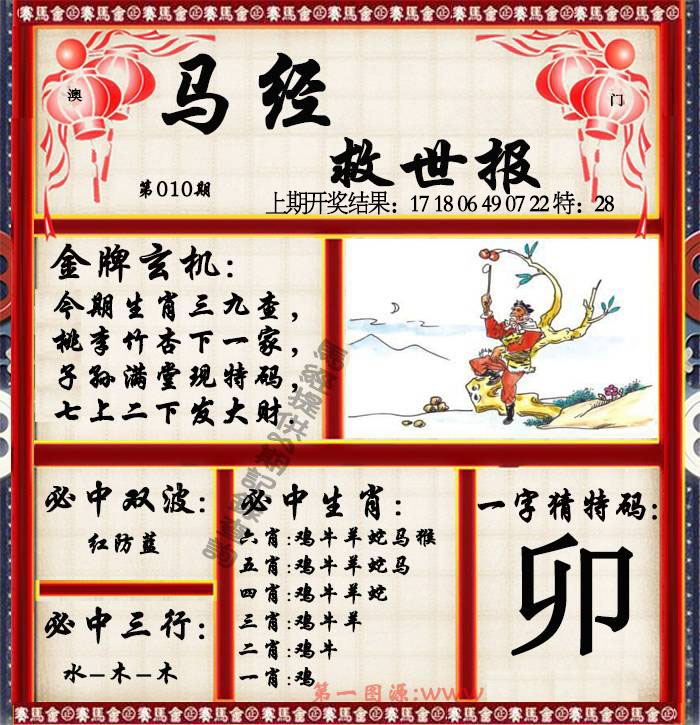 正賽馬會金正賽馬會金正賽馬會金正賽馬會金正賽馬會金正賽馬會金正賽馬會
澳
门
马经
救世报
第010期
上期开奖结果：17 18 06 49 07 22 特：28
金牌玄机：
今期生肖三九查，
桃李竹杏下一家，
子孙满堂现特码，
七上二下发大财.
必中双波：
红防蓝
必中三行：
水-木-木
必中生肖：
六肖:鸡牛羊蛇马猴
五肖:鸡牛羊蛇马
四肖:鸡牛羊蛇
三肖:鸡牛羊
二肖:鸡牛
一肖:鸡
一字猜特码：
卯
第一图源:www